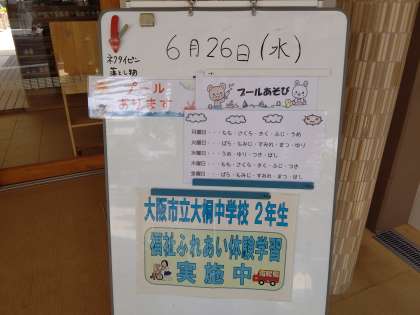 6月26日(水)
ネクタイピン
落とし物
プール
あります
プールあそび
月曜日・・・もも・さくら・きく・ふじ・うめ
火曜日・・・ばら・もみじ・すみれ・まつ・ゆり
水曜日・・・うめ・ゆり・つき・ほし
木曜日・・・もも・さくら・きく・ふじ・つき
金曜日・・・ばら・もみじ・すみれ・まつ・ほし
大阪市立大桐中学校 2年生
福祉ふれあい体験学習
実施中